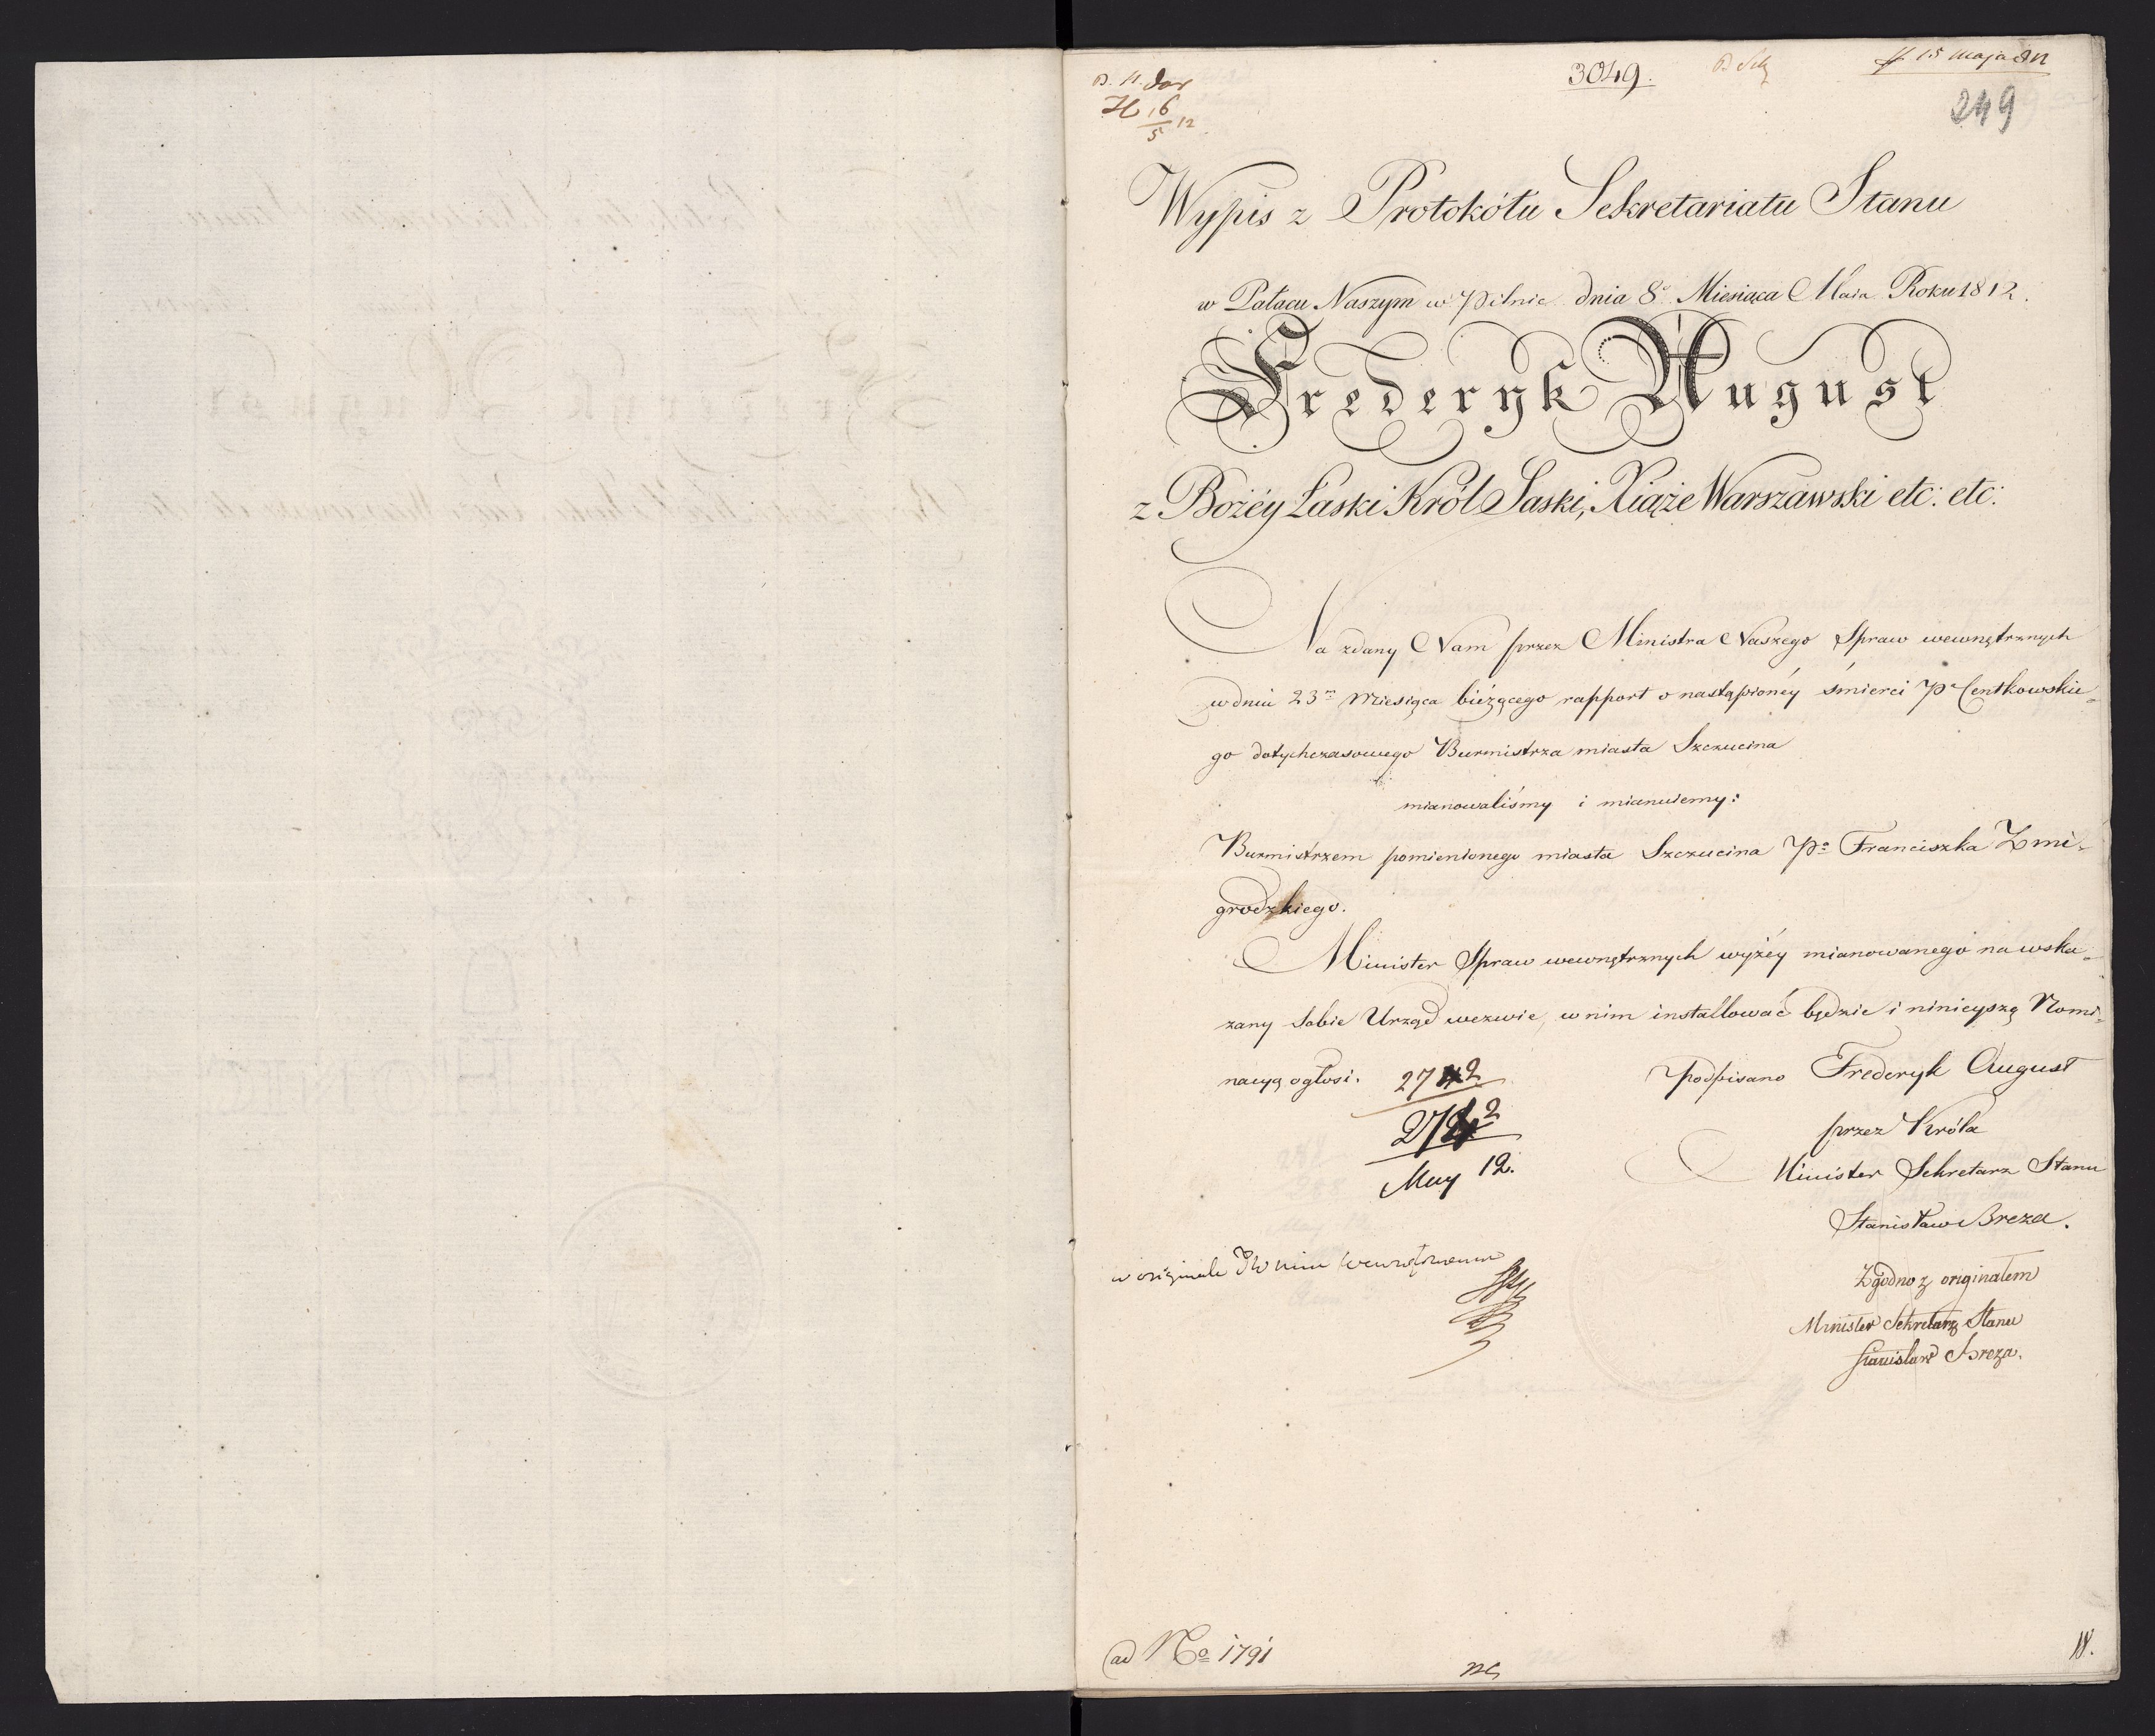 3049.
15 maja 812
249
16
5 12
Wypis z Protokółu Sekretariatu Stanu
w Pałacu Naszym w Pilnic dnia 8o Miesiąca Maia Roku 1812.
Frederyk August
z Bożéy Łaski Król Saski, Xiąże Warszawski etc: etc:
Na zdany Nam przez Ministra Naszego Spraw wewnętrznych
w dniu 23m Miesiąca bieżącego rapport o nastąpionéy śmierci Pa Centkowskie=
go dotychczasowego Burmistrza miasta Szczucina
mianowaliśmy i mianuiemy:
Burmistrzem pomienionego miasta Szczucina Pa Franciszka Zmi=
grodzkiego.
Minister Spraw wewnętrznych wyżéy mianowanego na wska=
zany sobie Urząd wezwie, w nim installować będzie i ninieyszą Nomi=
nacyą ogłosi.
Podpisano Frederyk August
przez Króla
Minister Sekretarz Stanu
Stanisław Breza.
May 12.
w originale
Zgodno z originałem
Minister Sekretarz Stanu
Stanisław Breza.
ad No 1791